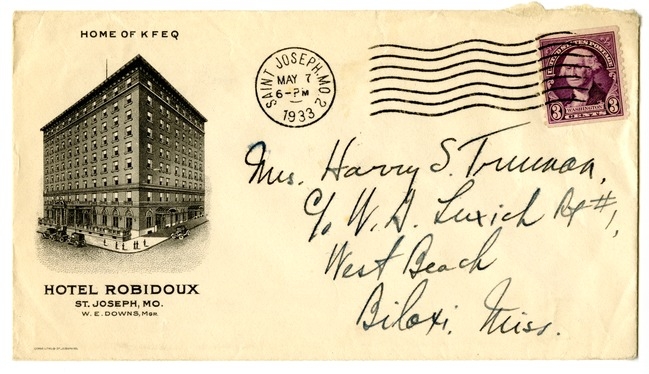 HOME OF KFEQ
HOTEL ROBIDOUX
ST. JOSEPH, MO.
W. E. DOWNS, MGR.
SAINT JOSEPH, MO. 2
MAY 7
6-PM
1933
UNITED STATES POSTAGE
3 WASHINGTON 3
CENTS
Mrs. Harry S. Truman,
c/o W. G. Luxich Rt #1,
West Beach
Biloxi, Miss.